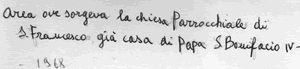 Area ove sorgeva la chiesa Parrocchiale di
S. Francesco già casa di Papa S. Bonifacio IV -
- 1968